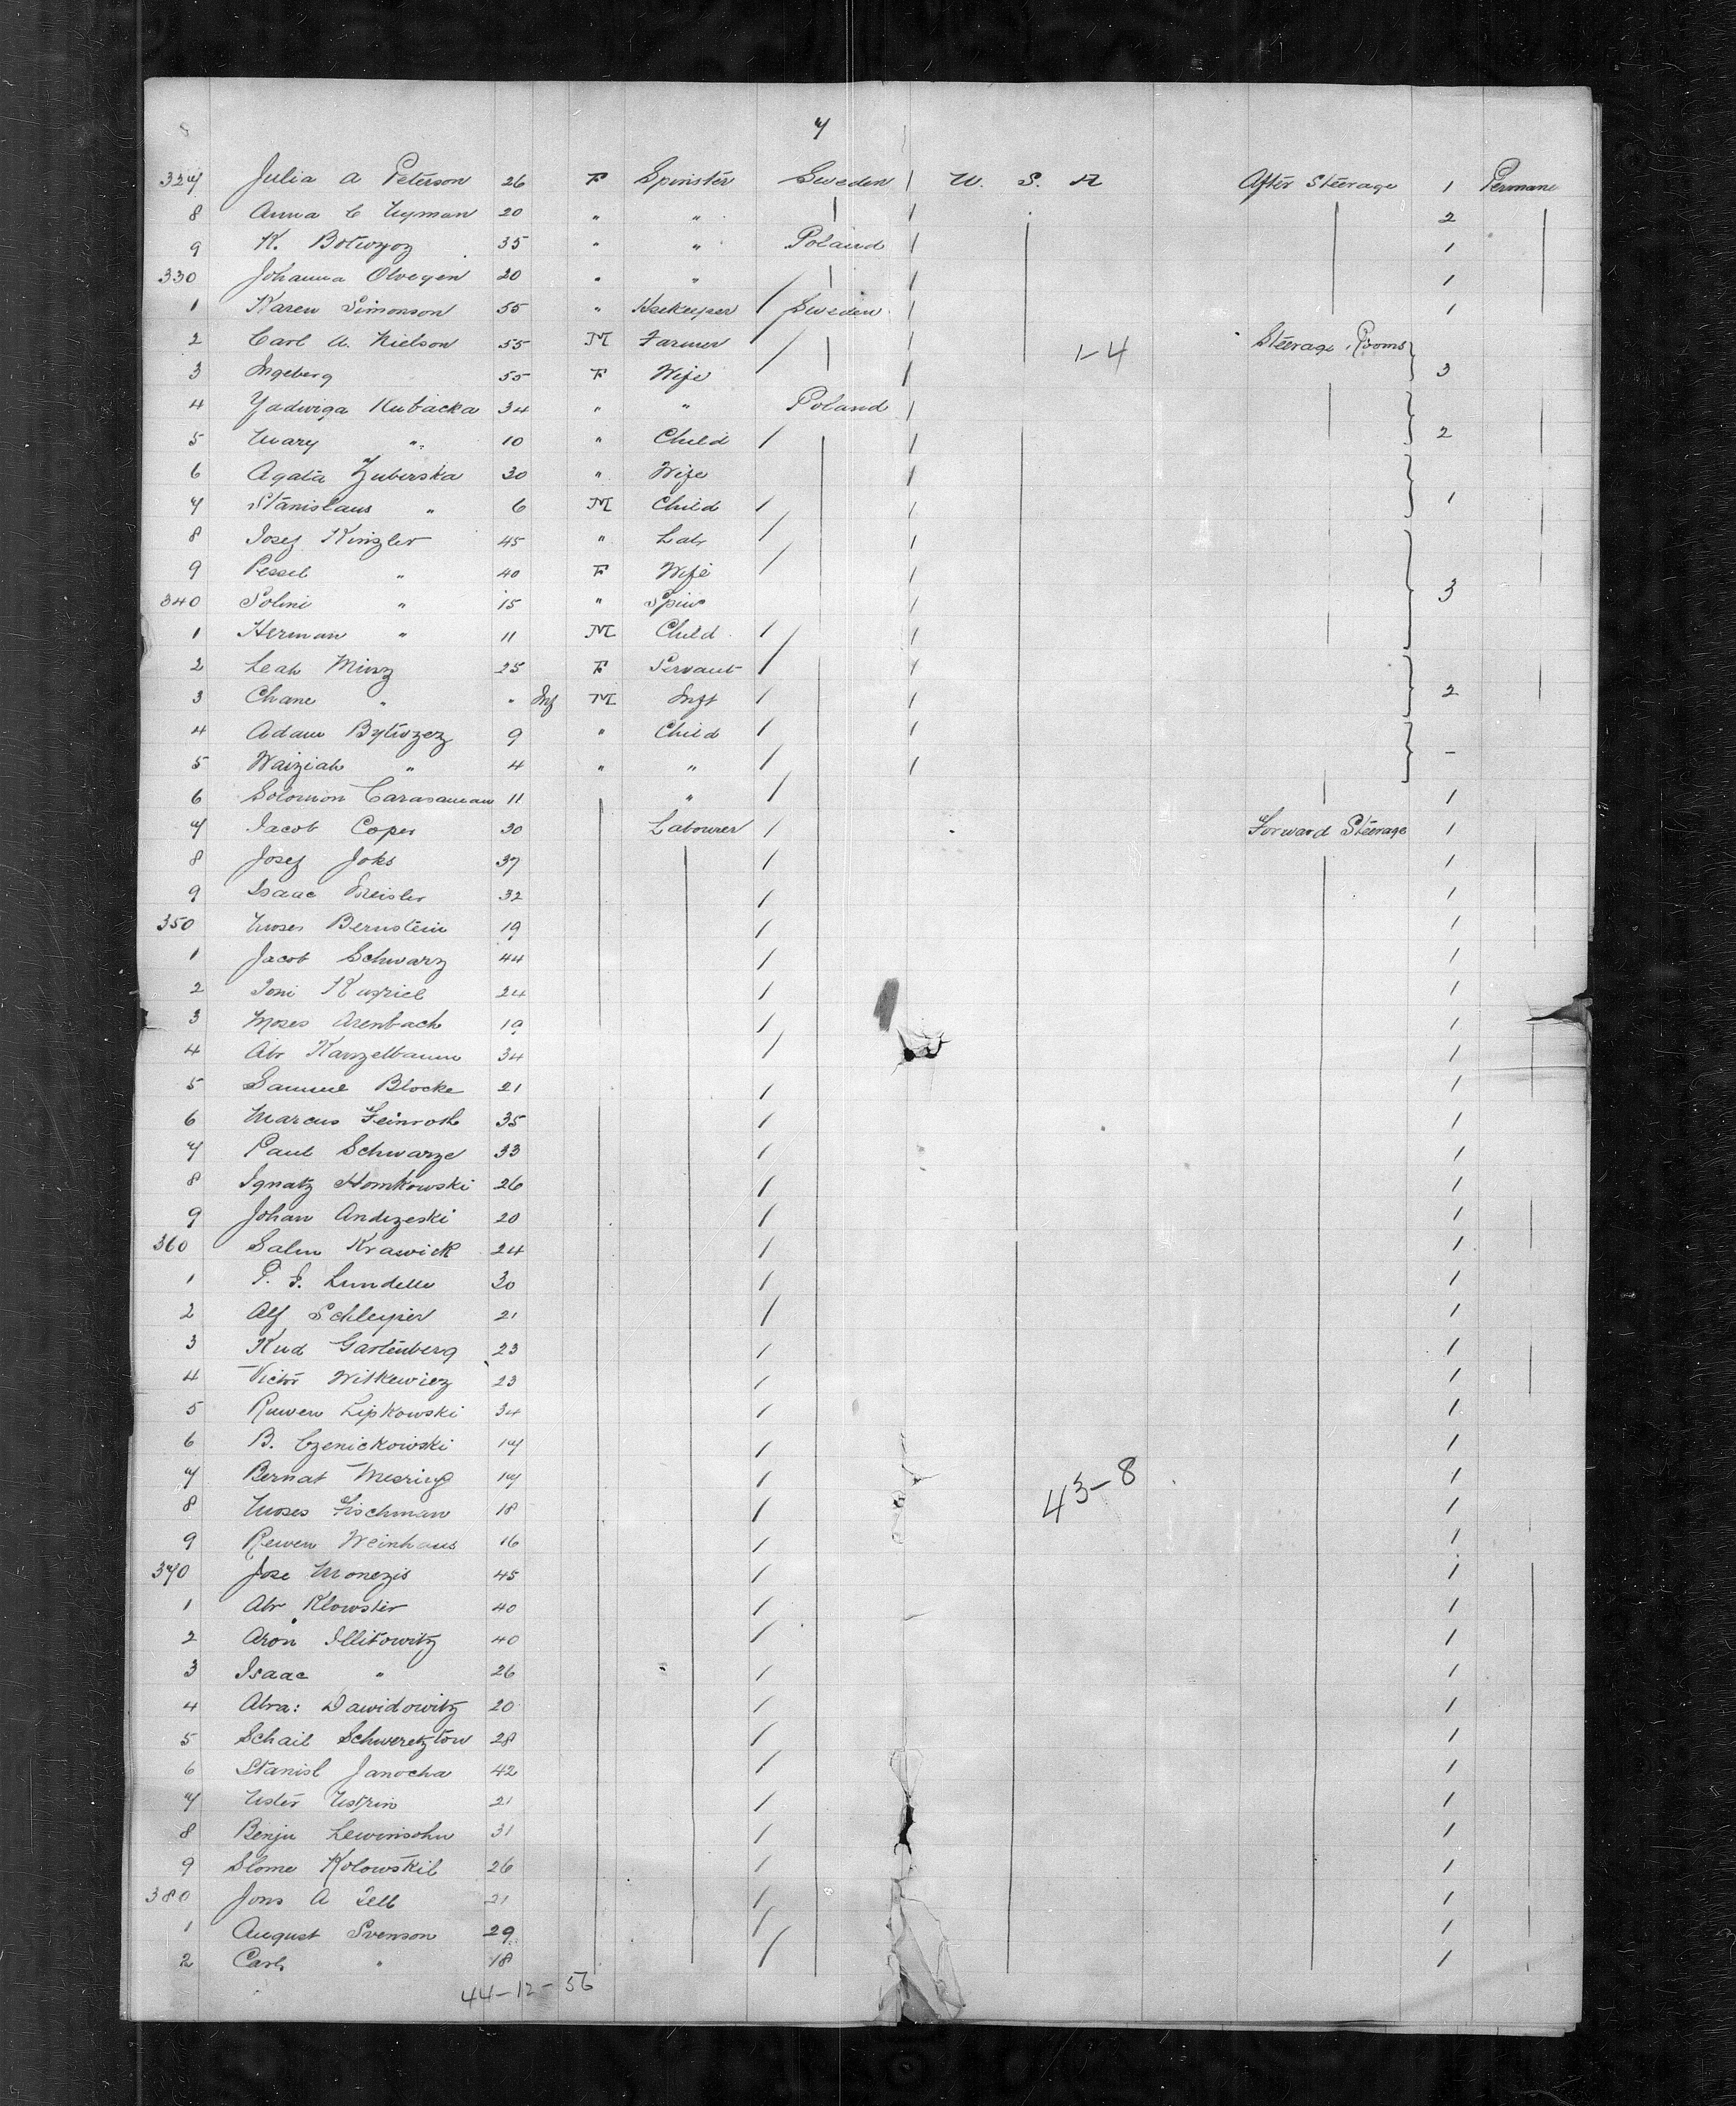 7
327 Julia A Peterson 26 F Spinster Sweden / U. S. A After Steerage 1 Permane
8 Anna C Nyman 20 " " / 2
9 K. 35 " " Poland / 1
330 Johanna 20 " " / 1
1 Karen Simonson 55 " Hsekeeper / Sweden / 1
2 Carl A. Nielson 55 M Farmer / / 1-4 Steerage Rooms
3 Ingeberg 55 F Wife / / 3
4 Jadwiga Kubacka 34 " " Poland /
5 Mary " 10 " Child / / 2
6 Agata Zuberska 30 " Wife /
7 Stanislaus " 6 M Child / / 1
8 Josef Kinzler 45 " Labr / /
9 Pessel " 40 F Wife / /
340 Solmi " 15 " Spins / 3
1 Herman " 11 M Child / /
2 Leah Minz 25 F Servant / /
3 Chane " " Inf M Inft / / 2
4 Adam Bytwzez 9 " Child / /
5 Waiziah " 4 " " / / -
6 Solomon 11 " / 1
7 Jacob Coper 30 Labourer / Forward Steerage 1
8 Josef Joks 37 / 1
9 Isaac 32 / 1
350 Moses Bernstein 19 / 1
1 Jacob Schwarz 44 / 1
2 24 / 1
3 Moses Arenbach 19 / 1
4 Abr Kanzelbaum 34 / 1
5 Samuel Blocke 21 / 1
6 Marcus Feinroth 35 / 1
7 Paul Schwarze 33 / 1
8 Ignatz Homkowski 26 / 1
9 Johan Andrzeski 20 / 1
360 Salm Krawick 24 / 1
1 P. J. Lundell 30 / 1
2 Alf Schleyier 21 / 1
3 Kud Gartenberg 23 / 1
4 Victor Witkewicz 23 / 1
5 Ruwen Lipkowski 34 / 1
6 B. Czenickowski 17 / 1
7 Bernat 17 / 43-8 1
8 Moses Fischman 18 / 1
9 Rewen Weinhaus 16 / 1
370 Jose Monezis 45 / 1
1 Abr Klowster 40 / 1
2 Aron Illitowitz 40 / 1
3 Isaac " 26 / 1
4 Abra: Dawidowitz 20 / 1
5 Schail Schweretztow 28 / 1
6 Stanisl Janocha 42 / 1
7 21 / 1
8 Benju Lewinsohn 31 / 1
9 Slome Kolowskil 26 / 1
380 Jons A 21 / 1
1 August Svenson 29 / 1
2 Carl " 18 / 1
44-12-56